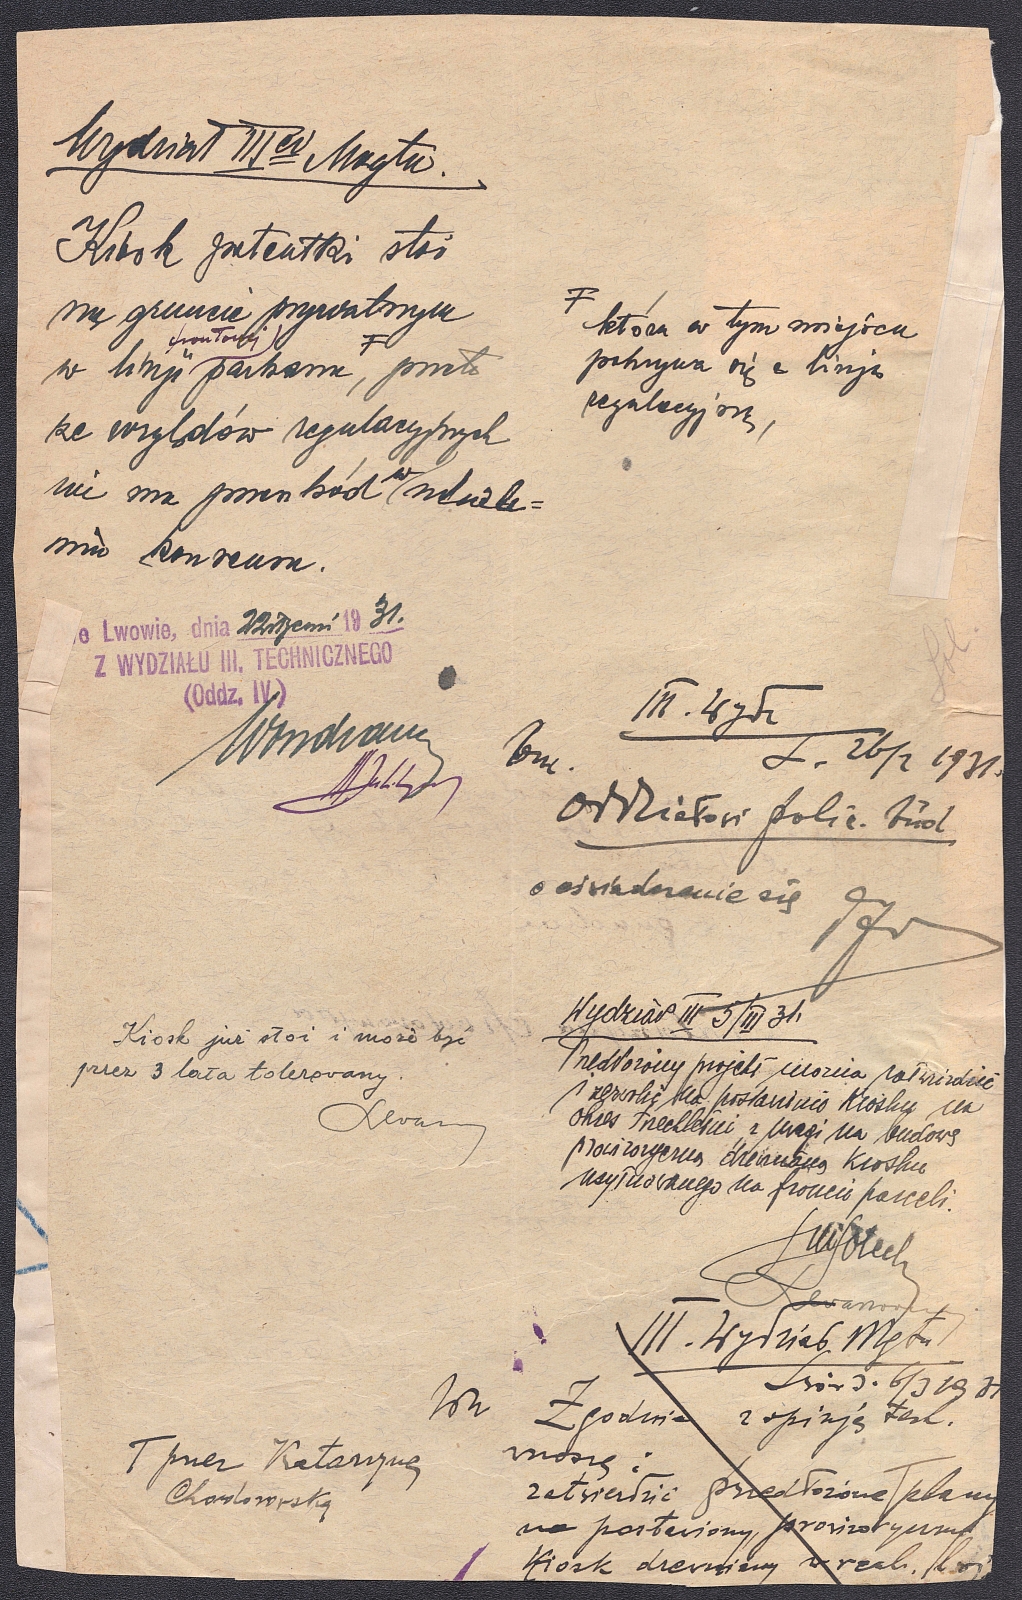 Wydział III ci Magtu.
Kiosk stoi
na gruncie prywatnym
w linji (frontowej) parkanu, ₣ przeto
ze względów regulacyjnych
nie ma przeszkód w udziele=
niu konsensu.
₣ która w tym miejscu
pokrywa się z linją
regulacyjną,
e Lwowie, dnia 22 stycznia 1931.
Z WYDZIAŁU III. TECHNICZNEGO
(Oddz. IV.)
III. Wydz
L. 26/2 1931.
Oddziałowi polic. bud
o oświadczenie się
Kiosk już stoi i może być
przez 3 lata tolerowany.
Wydział III 5/III 31.
Przedłożony projekt można zatwierdzić
i zezwolić na postawienie kiosku na
okres trzechletni z uwagi na budowę
prowizoryczną drewnianą kiosku
usytuowanego na froncie parceli.
III. Wydział Mgtu
Lwów d. 6/3 1931
Zgodnie z opinją tech.
wnoszę:
zatwierdzić przedłożone T plany
na postawiony, prowizoryczny
kiosk drewniany w real.
T przez Katarzynę
Chodorowską